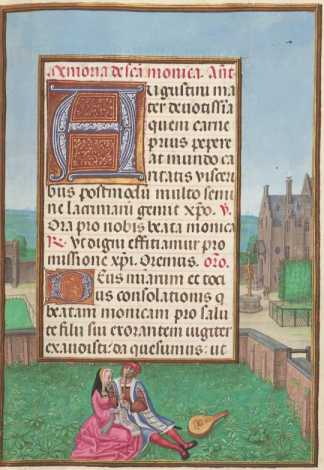 Memoria de scā monica. Añ.
Augustini ma
ter devotissīa
quem carne
prius pepere
at mundo ca
ritatis visceri
bus postmodū multo semi
ne lacrimarū genuit xp̄o. ℣.
Ora pro nobis beata monica
℟. Ut digni efficiamur pro
missione xp̄i. Oremus. oro.
Deus mīarum et toci
us consolationis q̄
beatam monicam pro salu
te filii sui exorantem iugiter
exaudisti: da quesumus: ut